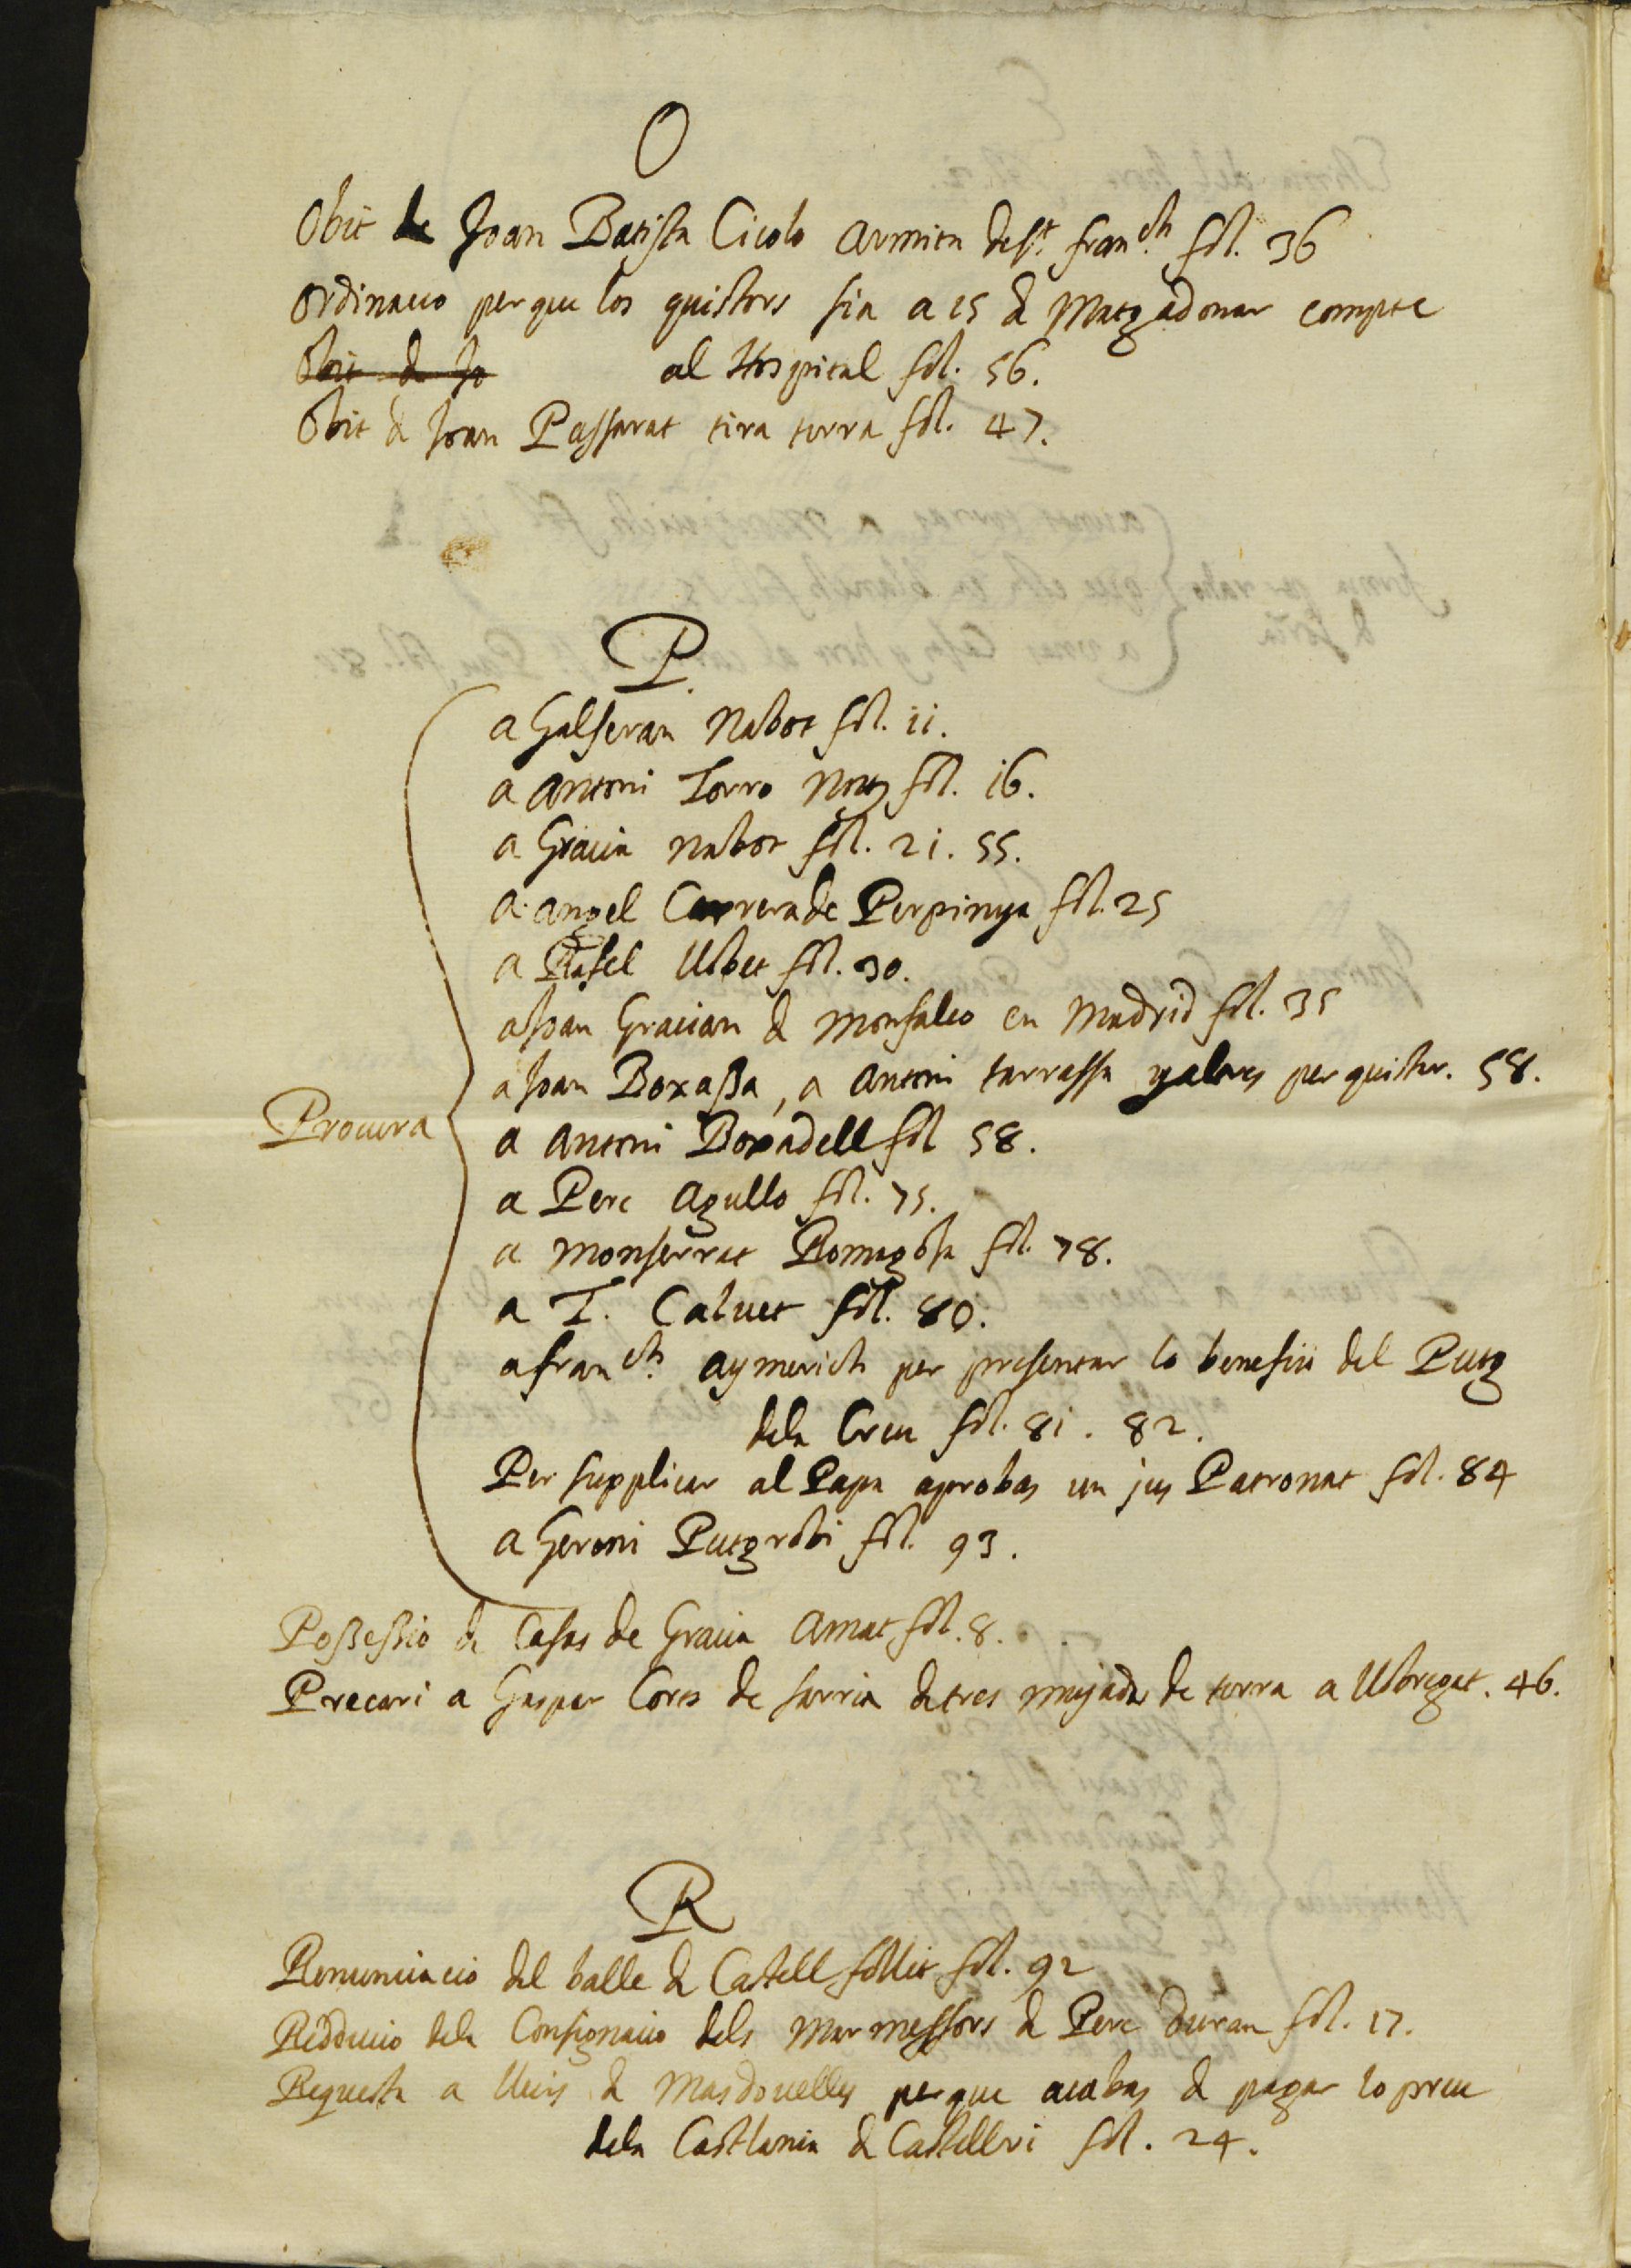 O
Obit de Joan Batista Cicolo armita de st. franch. fol. 36
Ordinacio perque los quistors sia a 15 de Matg adonar compte
Obit de Jo al Hospital fol. 56.
Obit de Joan Passarat tira terra fol. 47.
P.
a Galseran Nabot fol. 11.
a Antoni Torro Notj fol. 16.
a Gracia nabot fol. 21. 55.
a angel Carrera de Perpinya fol. 25
a Rafel Ubet fol. 30.
a Joan Gracian de Monfalco en Madrid fol. 35
a Joan Boxassa, a Antoni tarrassa y altres per quistar. 58.
Procura
a Antoni Boxadell fol 58.
a Pere Agullo fol. 75.
a Monserrat Romagosa fol. 78.
a T. Calvet fol. 80.
a franch. aymerich per presentar lo benefici del Putg
dela Creu fol. 81. 82.
Per supplicar al Papa aprobas un jus Patronat fol. 84
a Geroni Putgrobi fol. 93.
Possessio de Casas de Gracia Amat fol. 8.
Precari a Gaspar Cors de sarria de tres mujadas de terra a Llobregat. 46.
R
Renunciacio del balle de Castellfollit fol. 92
Redduccio dela Consignacio dels Marmessors de Pere Duran fol. 17.
Requesta a lluis de Masdovelles perque acabas de pagar lo preu
dela Castlania de Castellvi fol. 24.